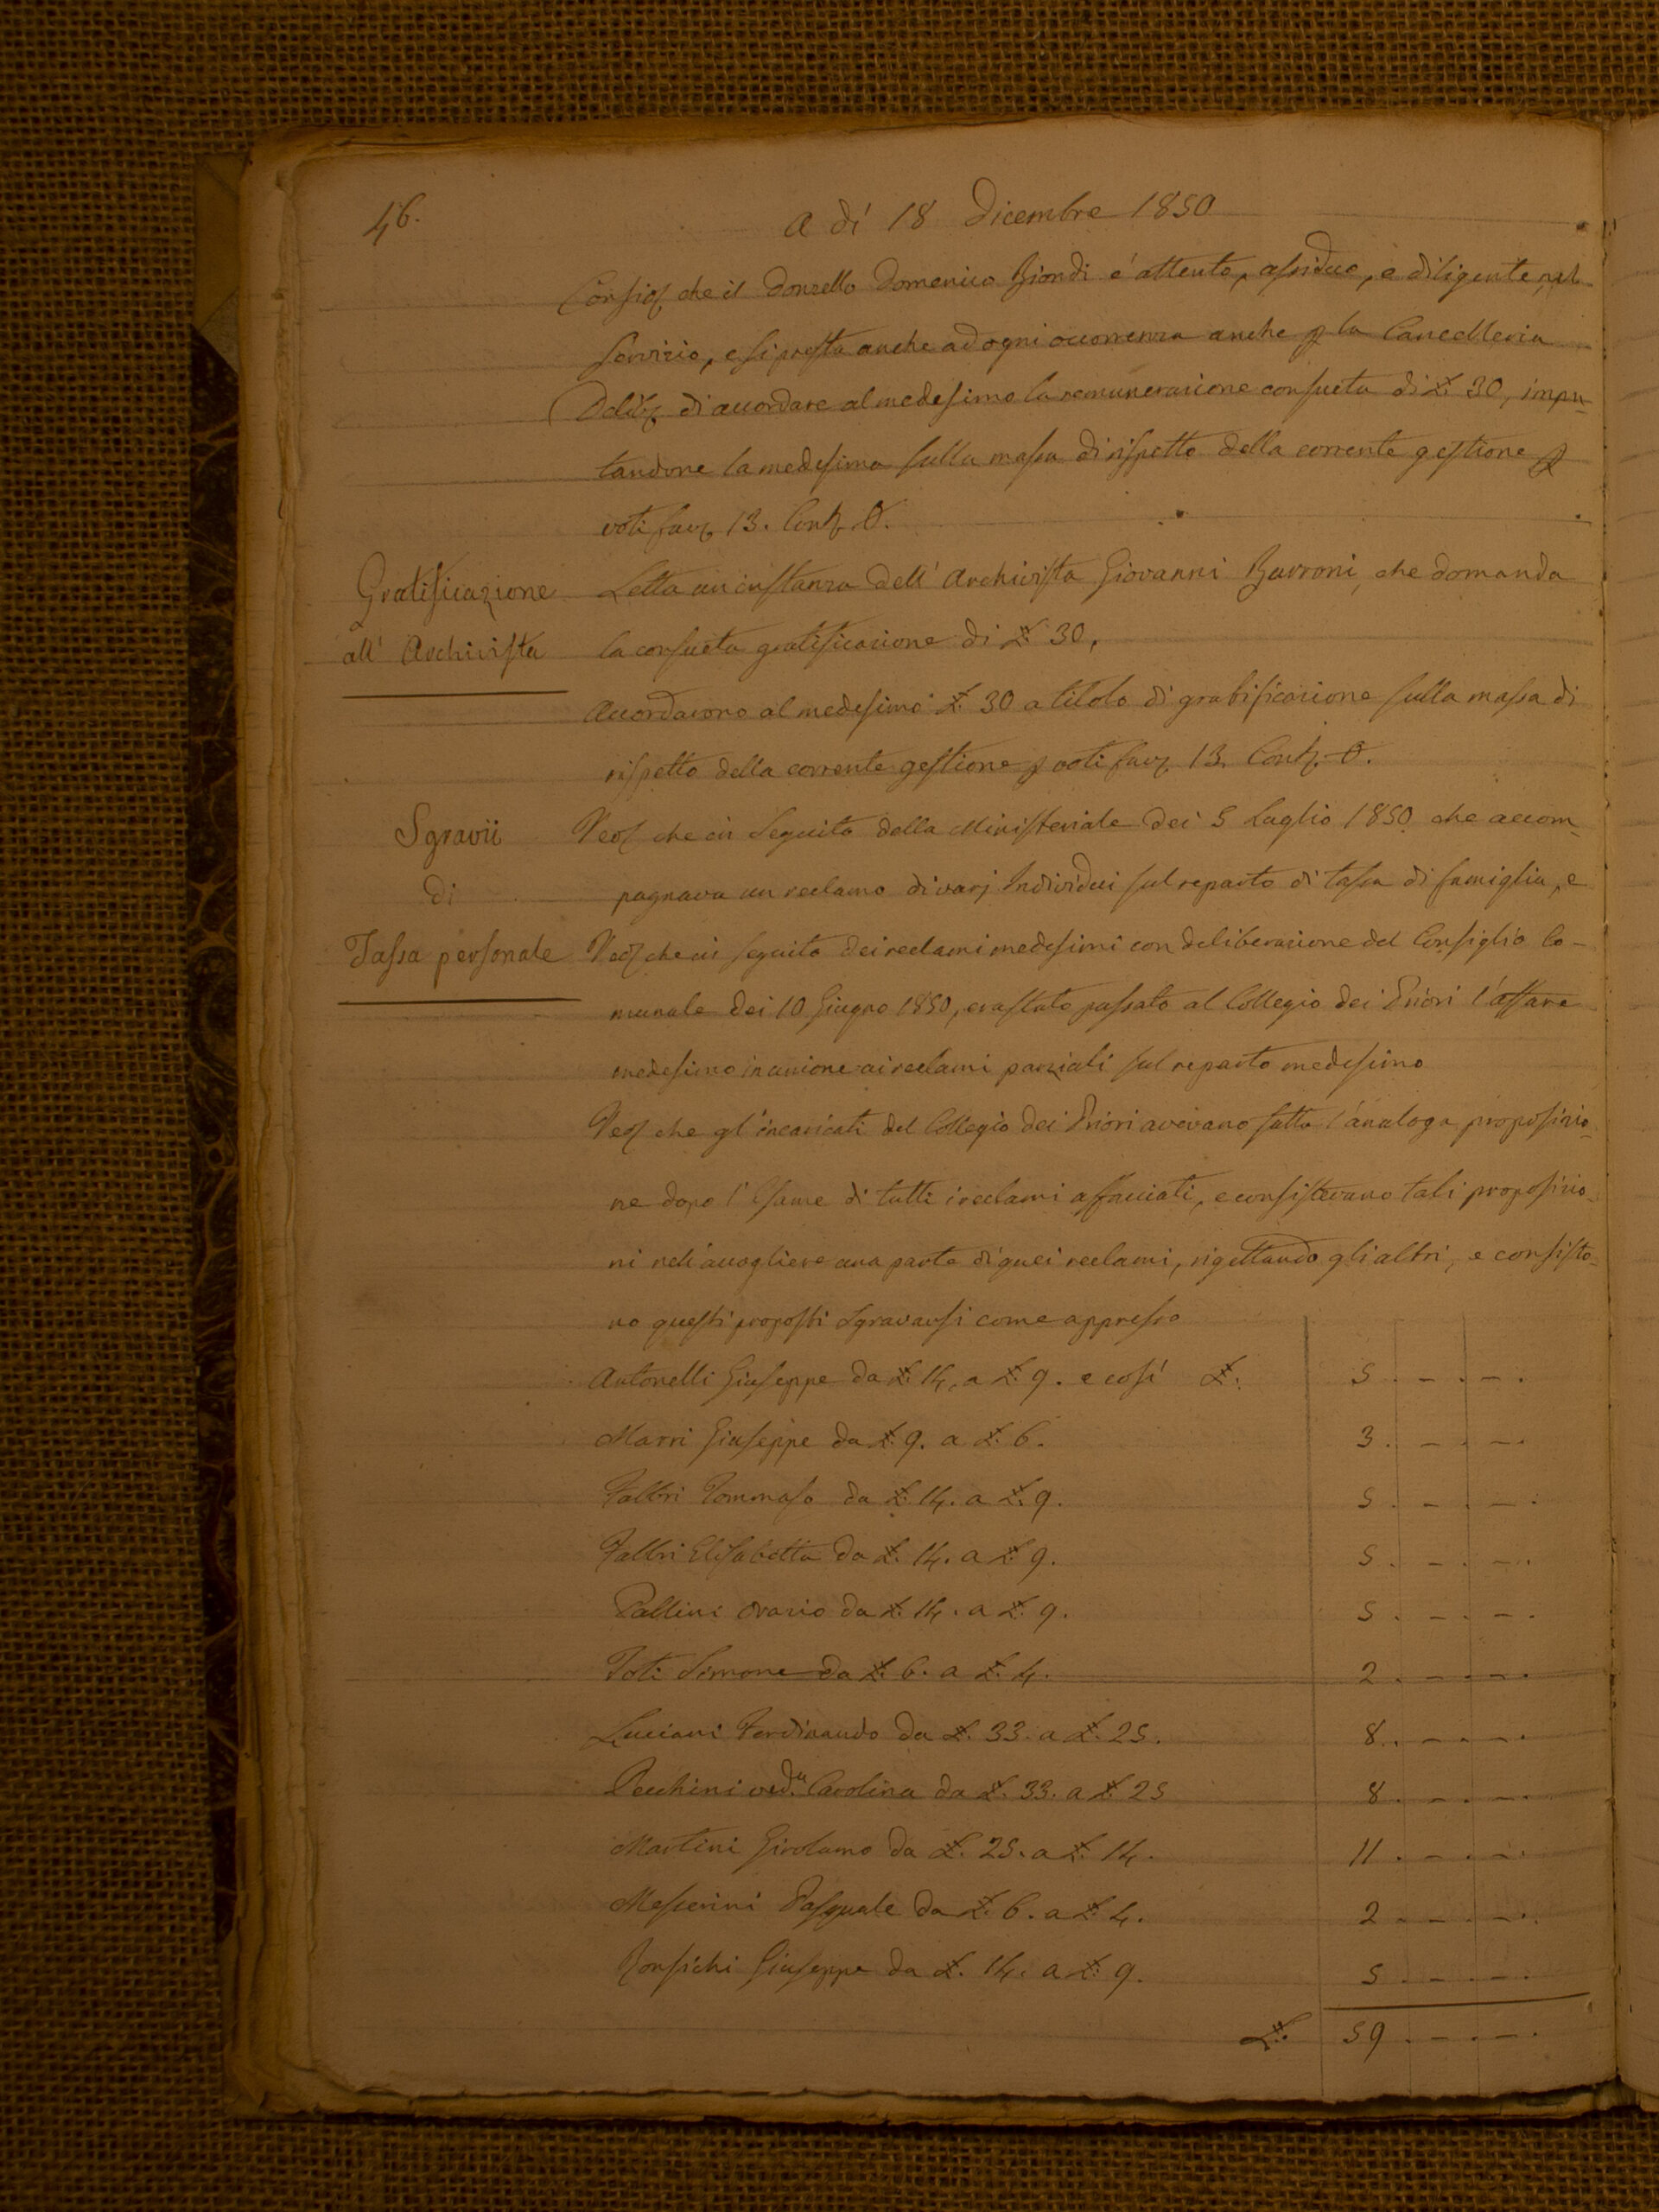 46.
A dí 18 Dicembre 1850
che il Donzello Domenico Biondi é attento, assiduo, e diligente nel
servizio, e si presta anche ad ogni occorrenza anche la Cancelleria
di accordare al medesimo la remunerazione consueta di £ 30, impu-
tandone la medesima sulla massa di rispetto della corrente gestione
voti 13. 0.
Gratificazione
all' Archivista
Letta un instanza dell' Archivista Giovanni Barroni, che domanda
la consueta gratificazione di £ 30,
Accordarono al medesimo £ 30 a titolo di gratificazione sulla massa di
rispetto della corrente gestione voti 13. 0.
Sgravii
di
Tassa personale
che in seguito della Ministeriale dei 5 Luglio 1850 che accom-
pagnava un reclamo di varj Individui sul reparto di tassa di famiglia, e
che in seguito dei reclami medesimi con deliberazione del Consiglio Co-
munale dei 10 Giugno 1850, era stato passato al Collegio dei Priori l'affare
medesimo in unione ai reclami parziali sul reparto medesimo
che gl'incaricati del Collegio dei Priori avevano fatta l'analoga proposizio-
ne dopo l'esame di tutti i reclami affacciati, e consistevano tali proposizio-
ni nell'accogliere una parte di quei reclami, rigettando gli altri, e consisto-
no questi proposti sgravarsi come appresso
Antonelli Giuseppe da £ 14, a £ 9. e cosí £. 5 . - . - .
Marri Giuseppe da £ 9. a £ 6. 3 . - . - .
Fabbri Tommaso da £ 14. a £ 9. 5 . - . - .
Fabbri Elisabetta da £. 14. a £ 9. 5 . - . - .
Pallini Orazio da £. 14. a £. 9. 5 . - . - .
Toti Simone da £. 6. a £. 4. 2 . - . - .
Luciani Ferdinando da £. 33. a £. 25. 8 . - . - .
Pecchini ved.a Carolina da £. 33. a £ 25 8 . - . - .
Martini Girolamo da £. 25. a £. 14. 11 . - . - .
Mescerini Pasquale da £. 6. a £ 4. 2 . - . - .
Ronsichi Giuseppe da £. 14. a £ 9. 5 . - . - .
£. 59 . - . - .